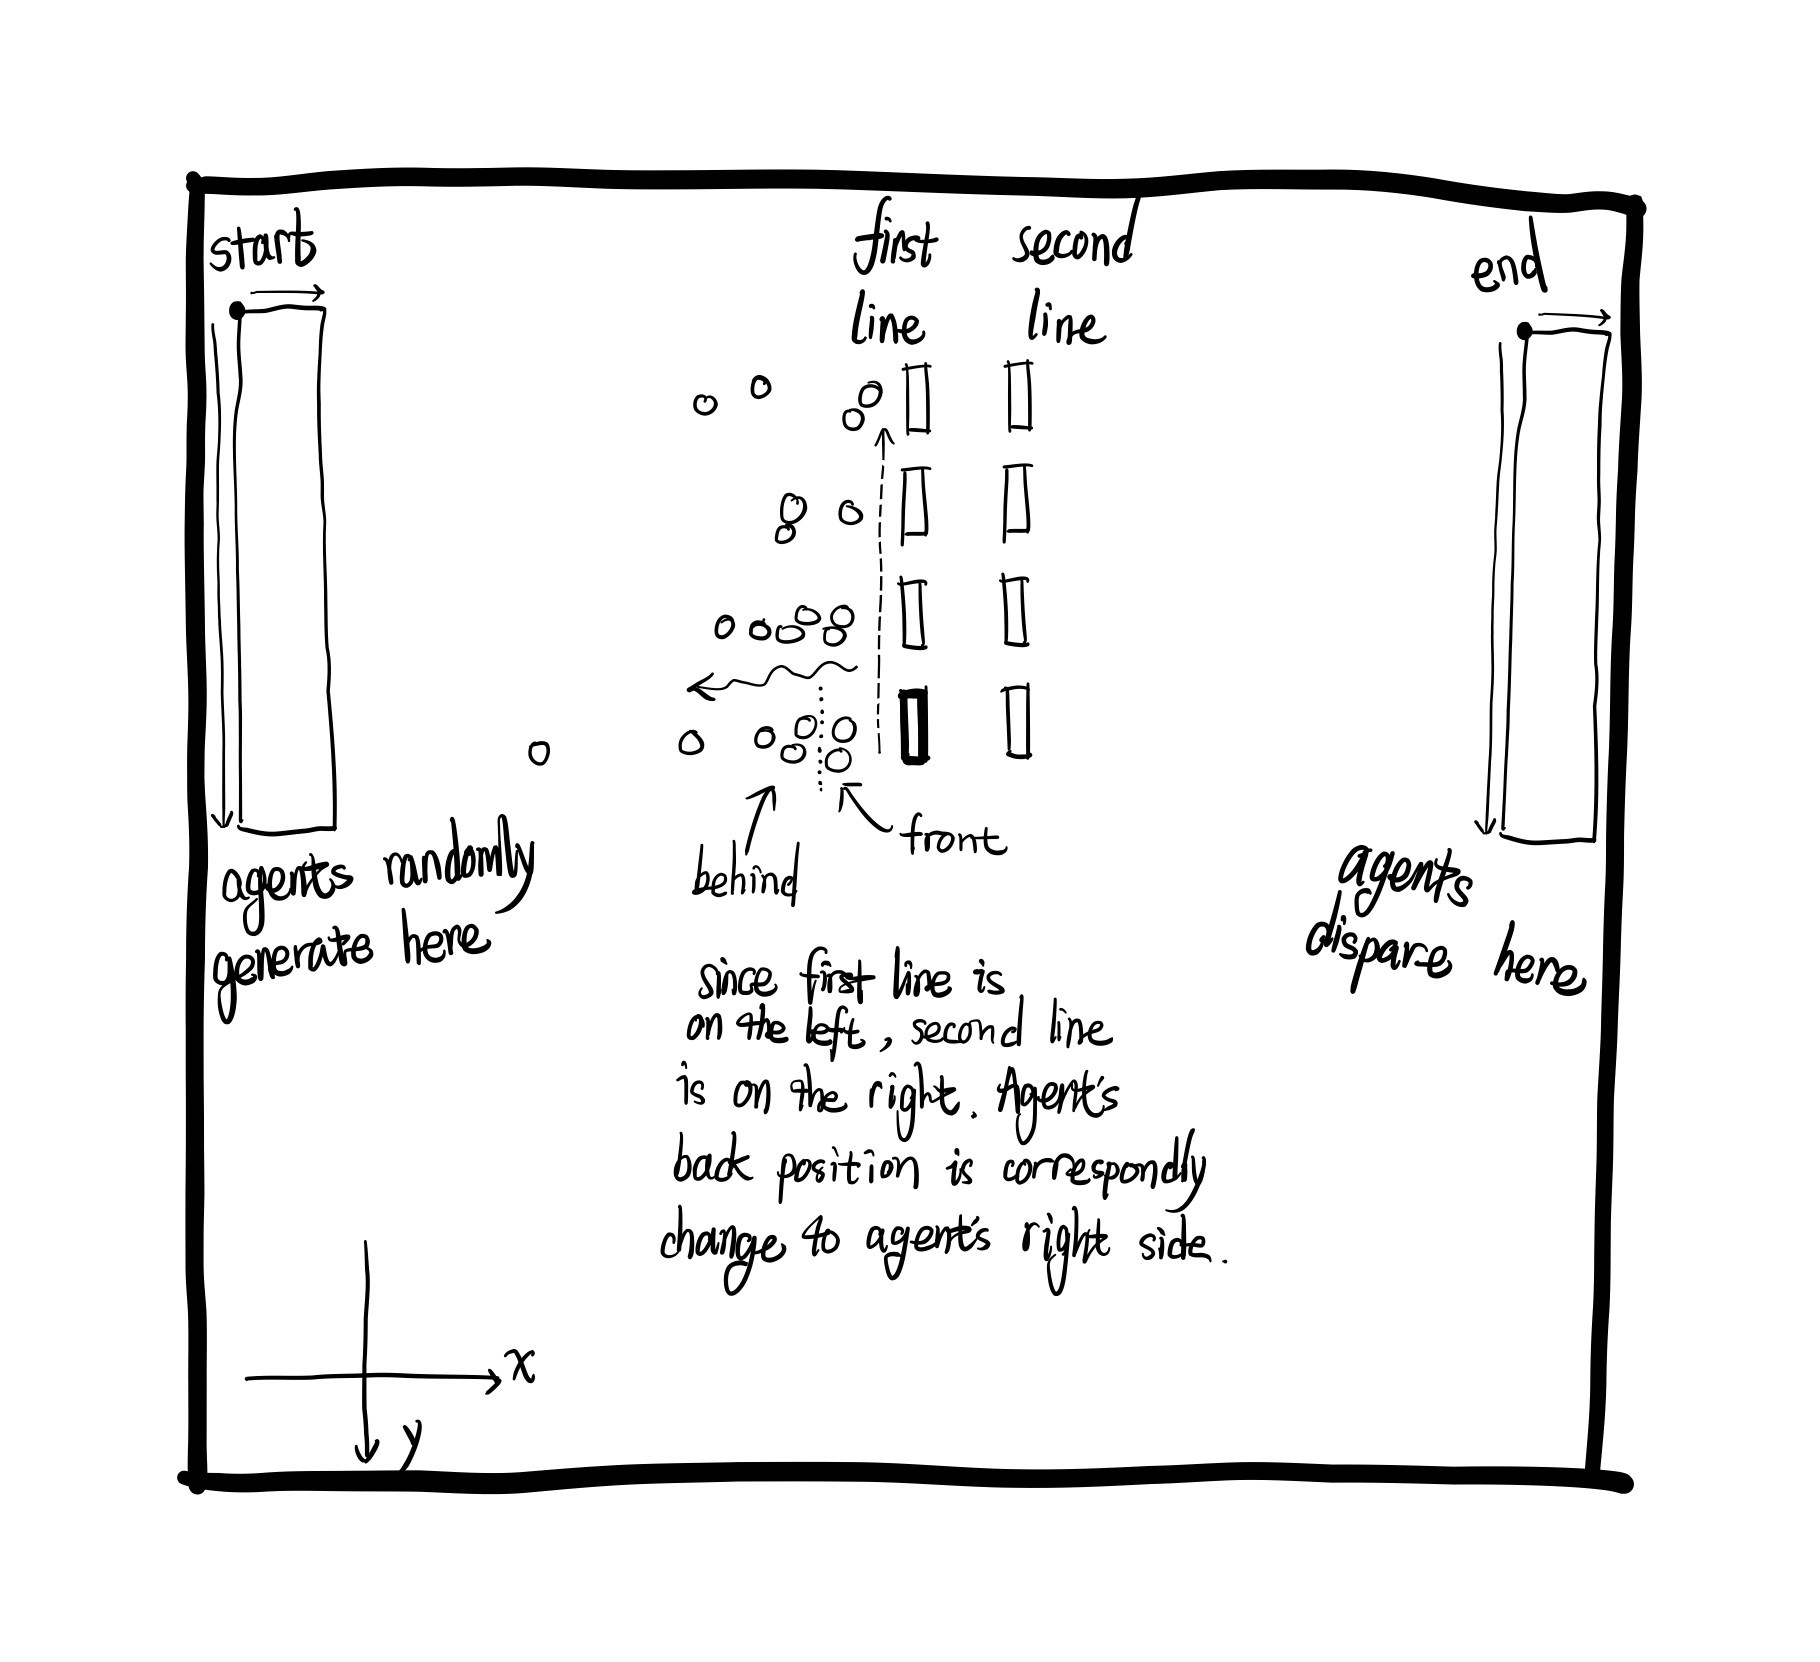 start
first
line
second
line
end
behind
front
agents randomly
generate here
agents
dispare here
since first line is
on the left, second line
is on the right. Agent's
back position is correspondly
change to agent's right side.
x
y